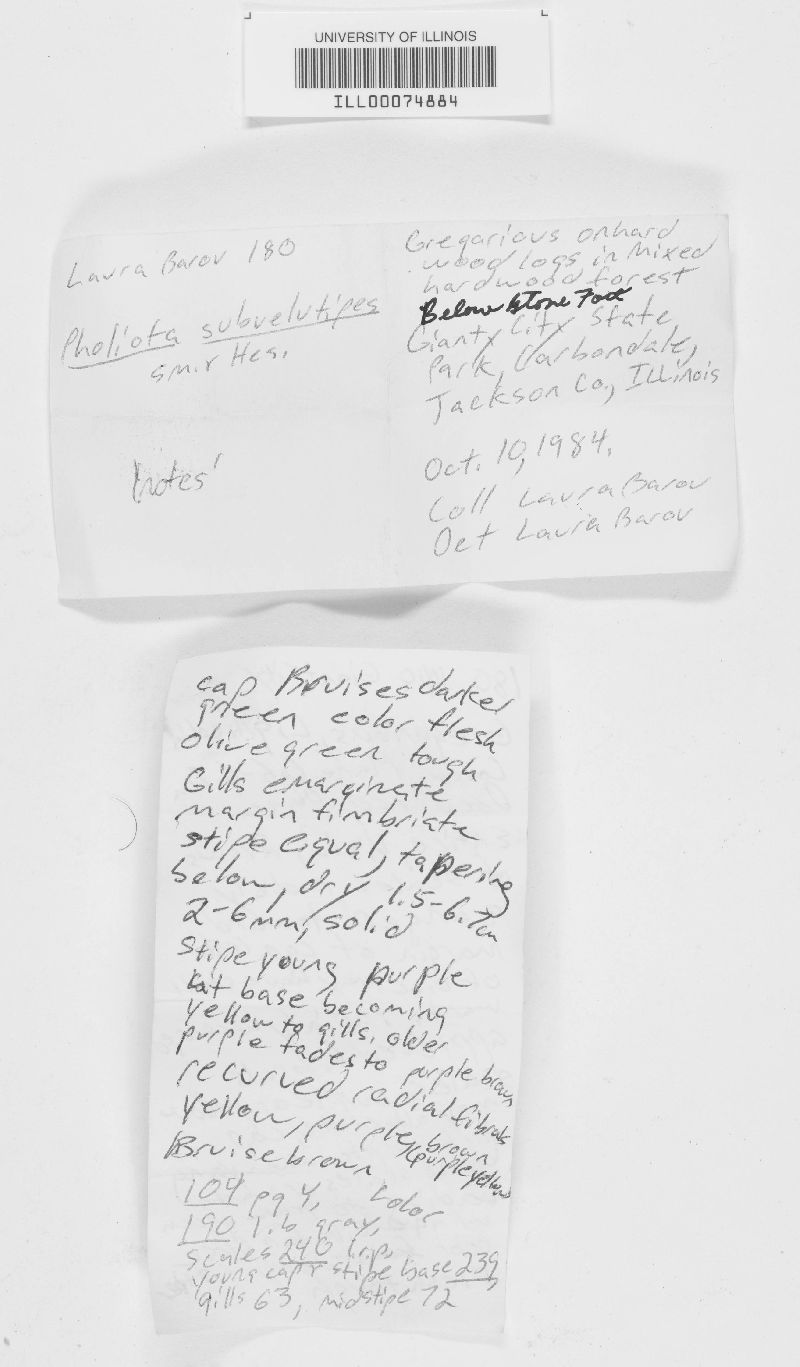 UNIVERSITY OF ILLINOIS
ILL00074884
Laura Barov 180
Pholiota subvelutipes
Sm. & Hes.
notes
Gregarious on hard
wood logs in mixed
hardwood forest
Below Stone Foot
Giant City State
Park, Carbondale,
Jackson Co., Illinois
Oct. 10, 1984.
Coll Laura Barov
Det Laura Barov
cap Bruises darker
green color flesh
Olive green tough
Gills emarginate
margin fimbriate
stipe equal, tapering
below, dry, 1.5-6.7cm
2-6mm, solid
stipe young purple
at base becoming
yellow to gills, older
purple fades to purple brown
recurved radial fibrils
yellow, purple brown
(purple yellow
Bruise brown
104 pg Y, color
190 l.b gray,
scales 240 l.r.p.
young cap & stipe base 239,
gills 63, midstipe 72